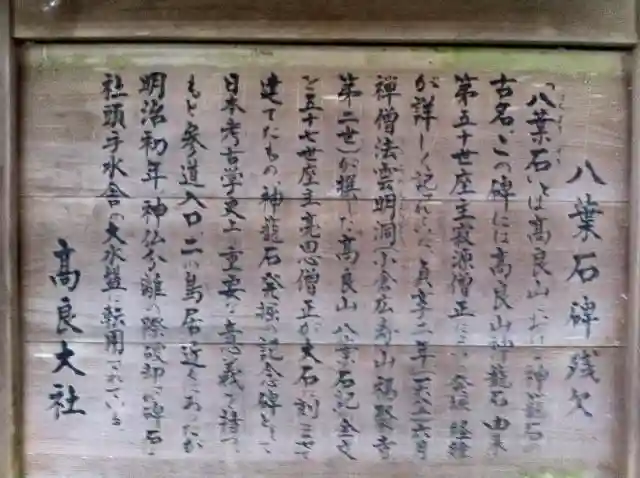 八葉石碑残欠
「八葉石」とは高良山における神籠石の
古名、この碑には高良山神籠石の由来
第五十世座主寂源僧正による発掘の経緯
が詳しく記されている。貞享二年
禅僧法雲明洞(小倉広寿山福聚寺
第二世)が撰した「高良山八葉石記」全文
を五十七世座主亮恩僧正が大石に刻ませて
建てたもの神籠石発掘の記念碑として
日本考古学史上重要な意義を持つ。
もと参道入口、二の鳥居の近くにあったが
明治初年神仏分離の際破却、碑石は
社頭手水舎の大水盤に転用されている。
高良大社